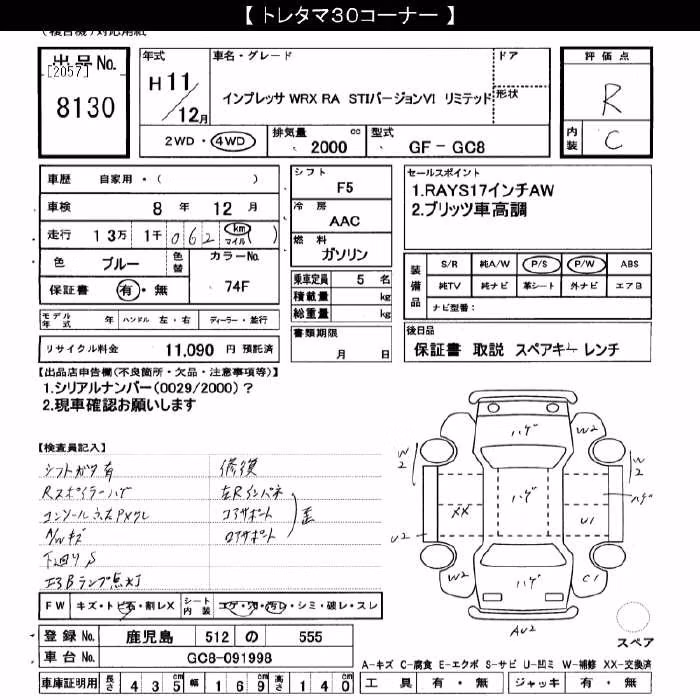 【 トレタマ30コーナー 】
(複合機)対応用紙
出品No.
[2057]
8130
年式
H11/12月
車名・グレード
インプレッサ WRX RA STIバージョンVI リミテッド
ドア
形状
評価点
R
内装
C
2WD・4WD
排気量 cc
2000
型式
GF - GC8
車歴 自家用・( )
車検 8 年 12 月
走行 13万 1千 062 km マイル ( )
色 ブルー 色替
カラーNo.
74F
保証書 有・無
シフト
F5
冷房
AAC
燃料
ガソリン
乗車定員 5 名
積載量 kg
総重量 kg
セールスポイント
1.RAYS17インチAW
2.ブリッツ車高調
装備品
S/R 純A/W P/S P/W ABS
純TV 純ナビ 革シート 外ナビ エアB
ナビ型番:
モデル年式 年 ハンドル 左・右 ディーラー・並行
書類期限
月 日
後日品
保証書 取説 スペアキー レンチ
リサイクル料金 11,090 円 預託済
【出品店申告欄(不良箇所・欠品・注意事項等)】
1.シリアルナンバー(0029/2000)?
2.現車確認お願いします
【検査員記入】
シフトガタ有 修復
Rスポイラーハゲ 左Rインパネ
コアサポート 歪
A/Wキズ
下回りS
ランプ点灯
FW キズ・トビ石・割レX シート内装 コゲ・穴・汚レ・シミ・破レ・スレ
登録No. 鹿児島 512 の 555
車台No. GC8-091998
車庫証明用 長さ 435 幅 169 高さ 140
ハゲ
W2
W2
W2
ハゲ
ハゲ
XX
U1
U2
W2
ハゲ
C1
AU2
スペア
A-キズ C-腐食 E-エクボ S-サビ U-凹ミ W-補修 XX-交換済
工具 有・無 ジャッキ 有・無